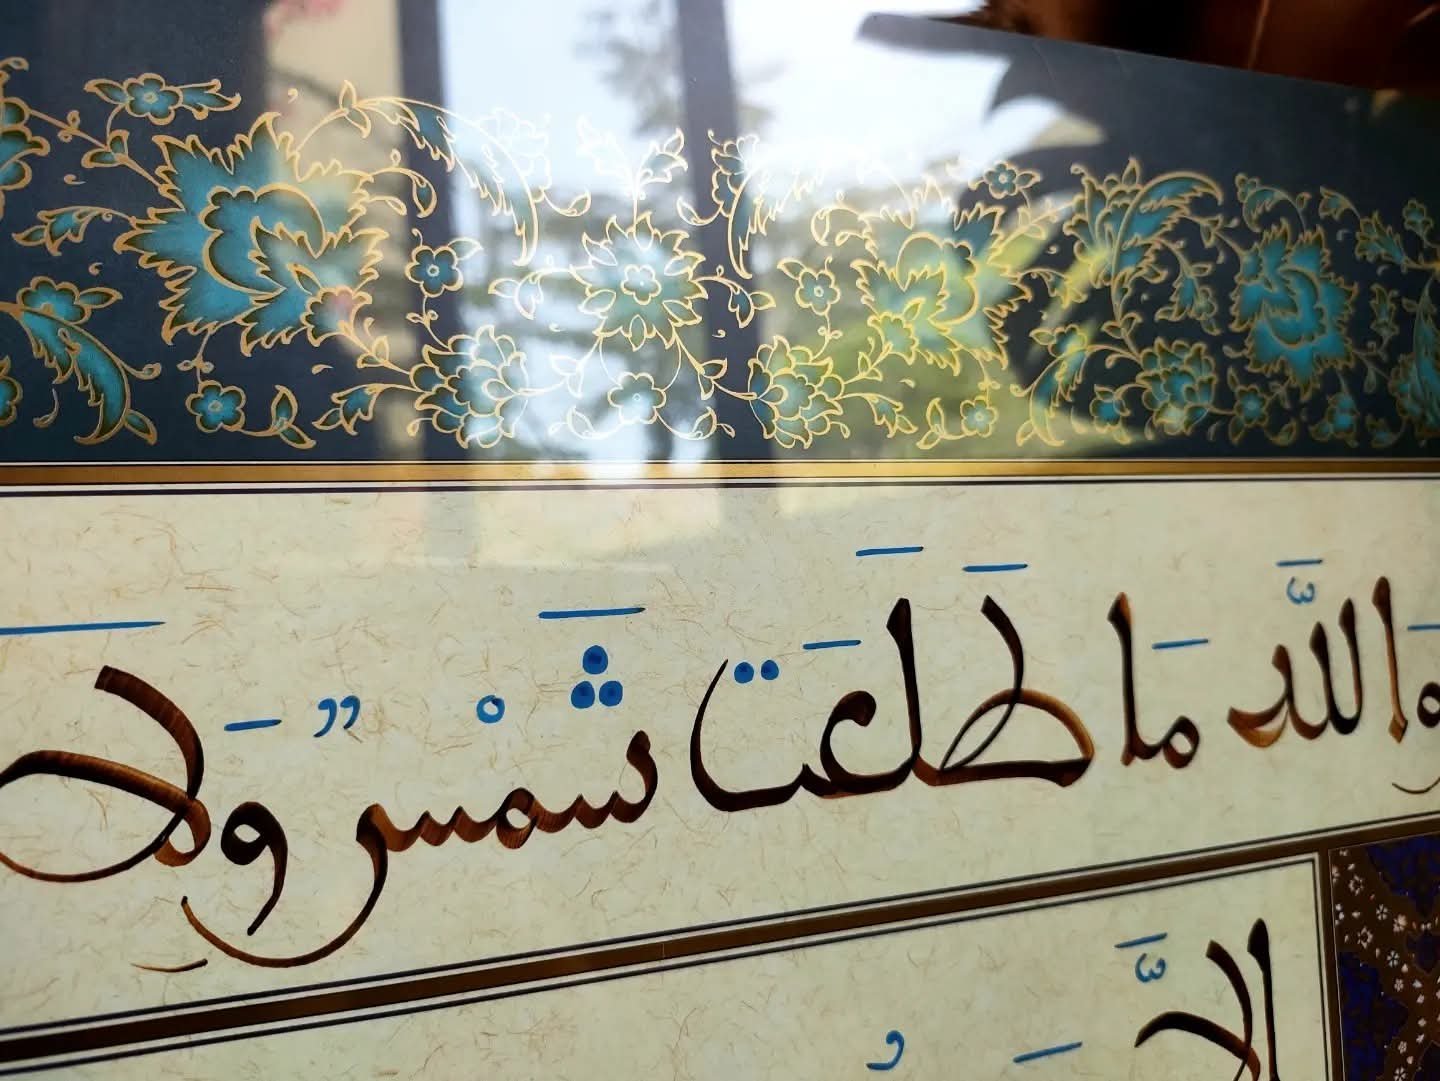 وَاللَّه مَا طَلَعَت شَمْسٌ وَلَا
إلَّا